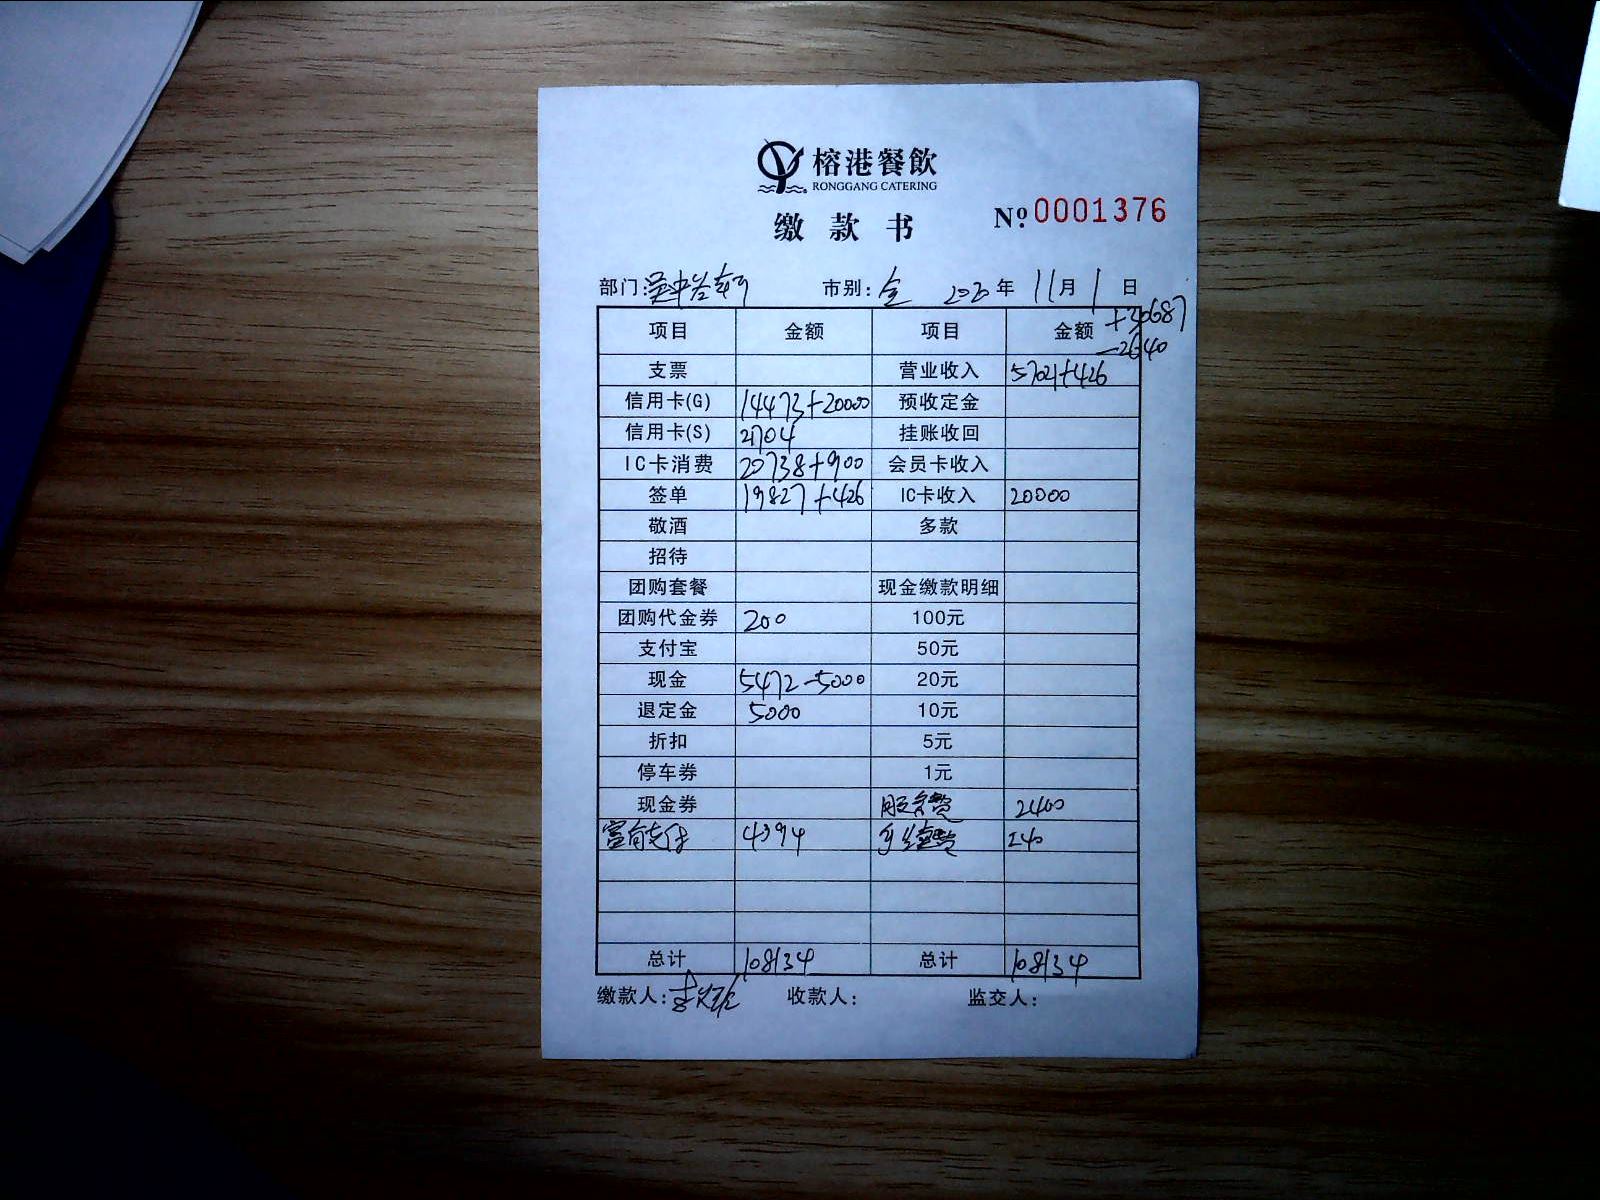 榕港餐飲
RONGGANG CATERING
缴款书 Nº 0001376
部门: 市别:全 2020年 11月 1日
项目 金额 项目 金额 +30687
-2640
支票 营业收入 57021+426
信用卡(G) 14473+20000 预收定金
信用卡(S) 21704 挂账收回
IC卡消费 20738+900 会员卡收入
签单 19827+426 IC卡收入 20000
敬酒 多款
招待
团购套餐 现金缴款明细
团购代金券 200 100元
支付宝 50元
现金 5472-5000 20元
退定金 5000 10元
折扣 5元
停车券 1元
现金券 服务费 2400
富有支付 4394 手续费 240
总计 108134 总计 108134
缴款人: 收款人: 监交人: